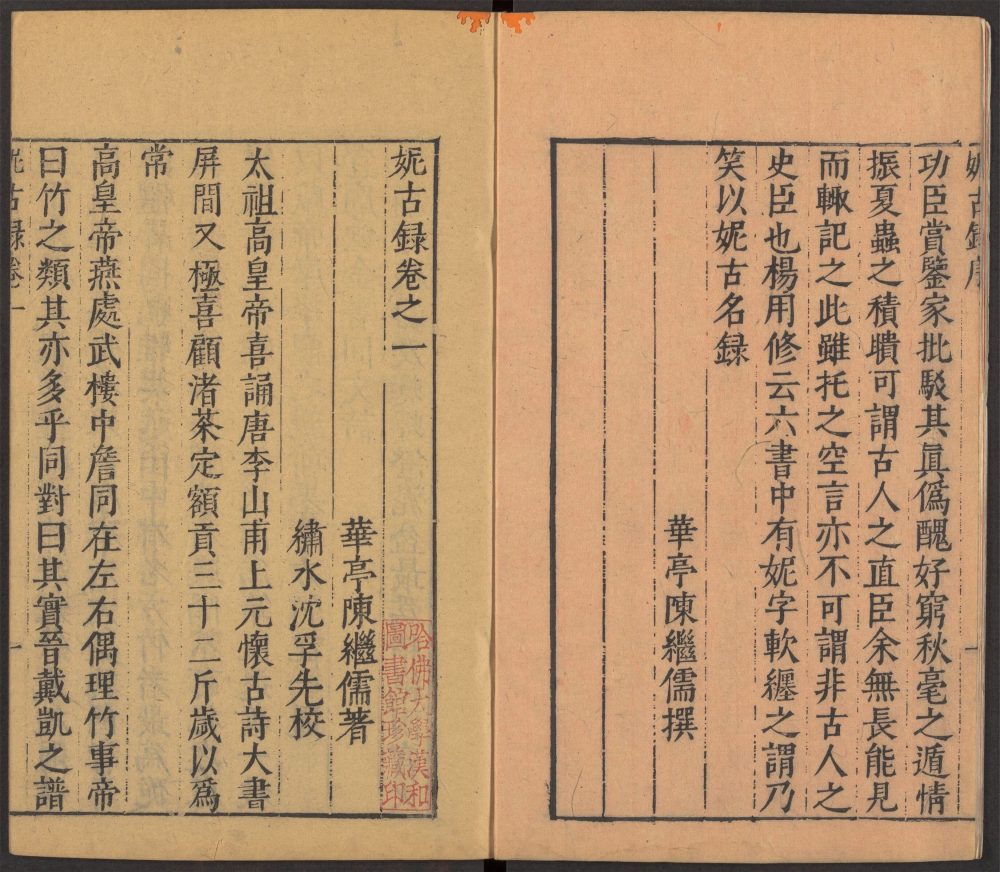 妮古録序
功臣賞鑒家批駁其眞僞醜好窮秋毫之遁情
振夏蟲之積聵可謂古人之直臣余無長能見
而輙記之此雖托之空言亦不可謂非古人之
史臣也楊用修云六書中有妮字軟纏之謂乃
笑以妮古名録
華亭陳繼儒撰
一
妮古録卷之一
華亭陳繼儒著
繡水沈孚先校
太祖高皇帝喜誦唐李山甫上元懷古詩大書
屏間又極喜顧渚茶定額貢三十二斤歲以爲
常
高皇帝燕處武樓中詹同在左右偶理竹事帝
曰竹之類其亦多乎同對曰其實晉戴凱之譜
妮古録卷一
一
哈佛大學漢和
圖書館珍藏印